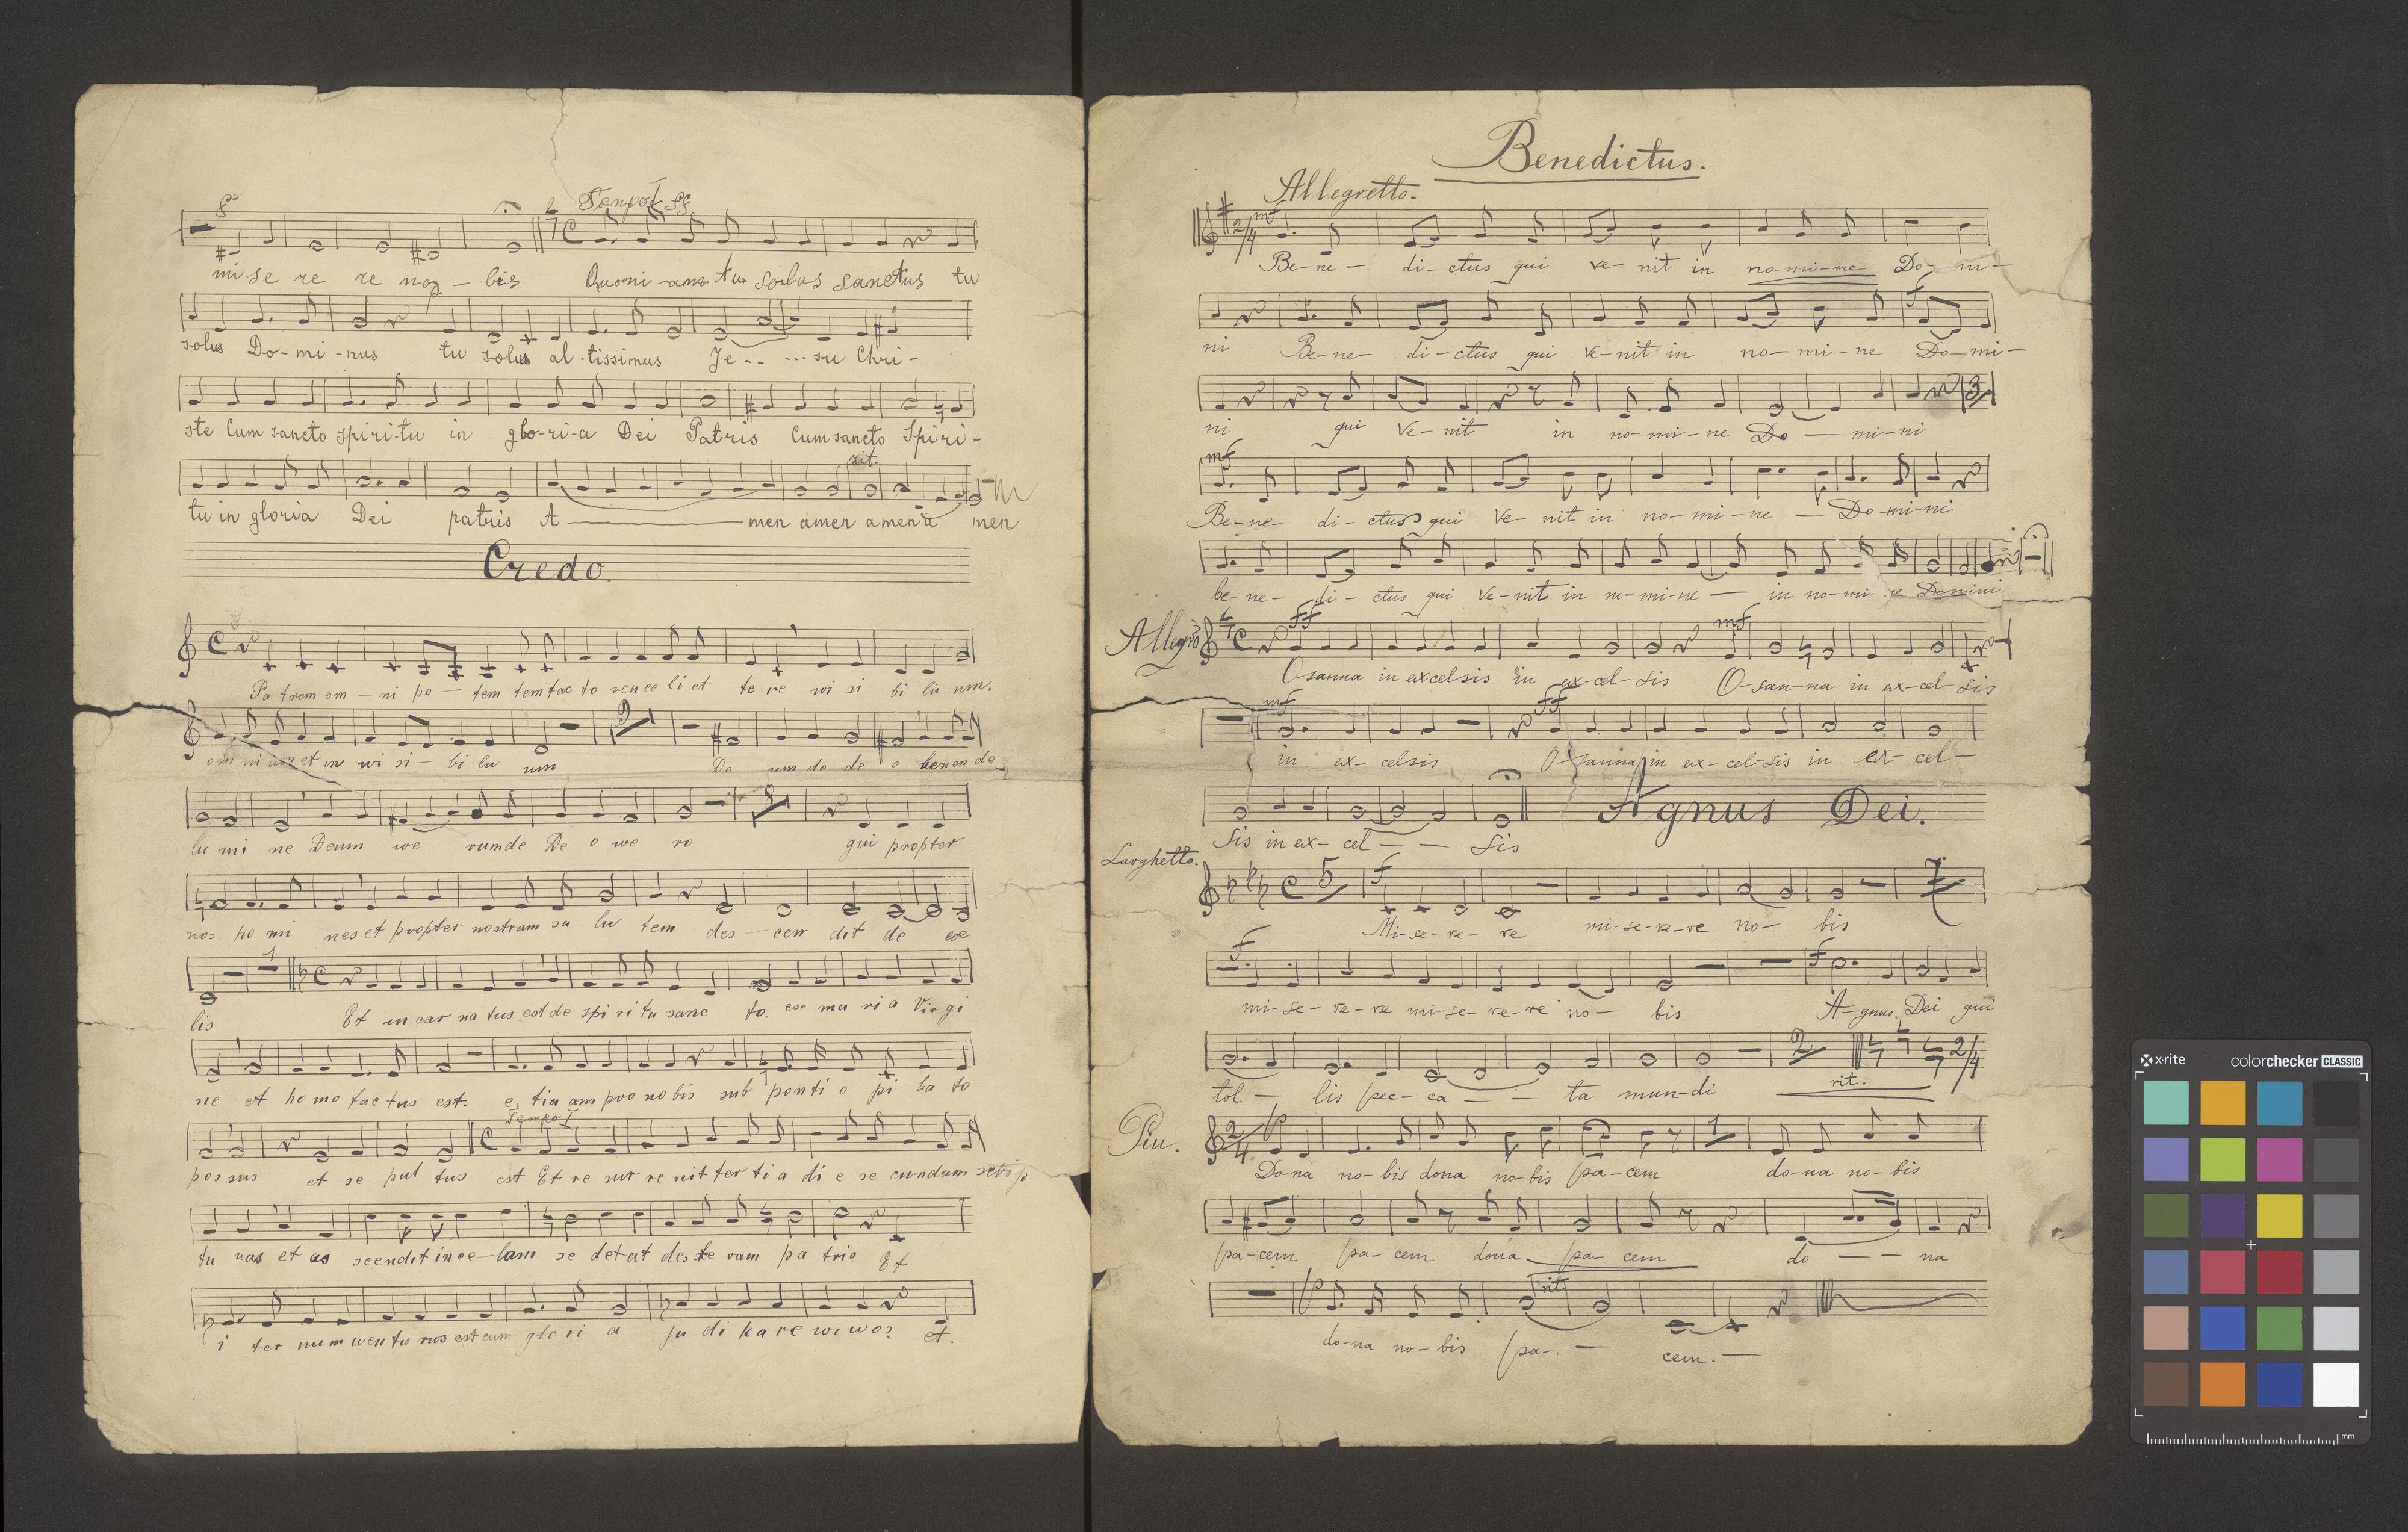 Tempo I ff
mi se re re nos - bis Quoni-am tu solus sanctus tu
solus Do-mi-nus tu solus al-tissimus Je-- ---su Chri-
ste Cum sancto spiri-tu in glo-ri-a Dei Patris Cum sancto Spiri-
rit.
tu in gloria Dei patris A — men amen amen a men
Credo.
Pa trem om - ni po - tem tem fac to rem ce li et te re wi si bi lu um.
om ni um et in wi si - bi lu um De um de de o
lu mi ne Deum we rum de De o we ro qui propter
nos ho mi nes et propter nostram sa lu tem des - cen dit de
lis Et in car na tus est de spi ri tu sanc to. exe ma ri a Vir gi
ne et ho mo fac tus est. e tia am pro no bis sub ponti o pi la to
Tempo I
pas sus et se pul tus est Et re sur re xit ter ti a di e se cundum scrip
tu ras et as scendit in ce - lum se det at dex te ram pa tris Et
i ter num wen tu rus est cum glo ri a ju di ka re wi wos et.
Benedictus.
Allegretto.
mf
Be-ne- di-ctus qui ve-nit in no-mi-ne Do-mi-
f
ni Be-ne- di-ctus qui ve-nit in no-mi-ne Do-mi-
3
ni qui Ve-nit in no-mi-ne Do — mi-ni
mf
Be-ne- di-ctus qui Ve-nit in no-mi-ne — Do-mi-ni
be-ne- di-ctus qui Ve-nit in no-mi-ne — in no-mi-ne Domini
Allegro ff mf
O-sanna in excelsis in ex-cel-sis O-san-na in ex-cel-sis
mf ff
in ex-celsis O-sanna in ex-cel-sis in ex-cel-
Agnus Dei.
sis in ex-cel - - sis
Larghetto. 5 f 7
Mi-se-re-re mi-se-re-re no- bis
f f
mi-se-re-re mi-se-re-re no- bis A-gnus Dei qui
2 2/4
tol - lis pec-ca - - ta mun-di rit.
Piu. 2/4 p 1
Do-na no-bis dona no-bis pa-cem do-na no-bis
pa-cem pa-cem dona pa-cem do - - na
p rit
do-na no-bis pa- - cem.-
x-rite colorchecker CLASSIC
mm